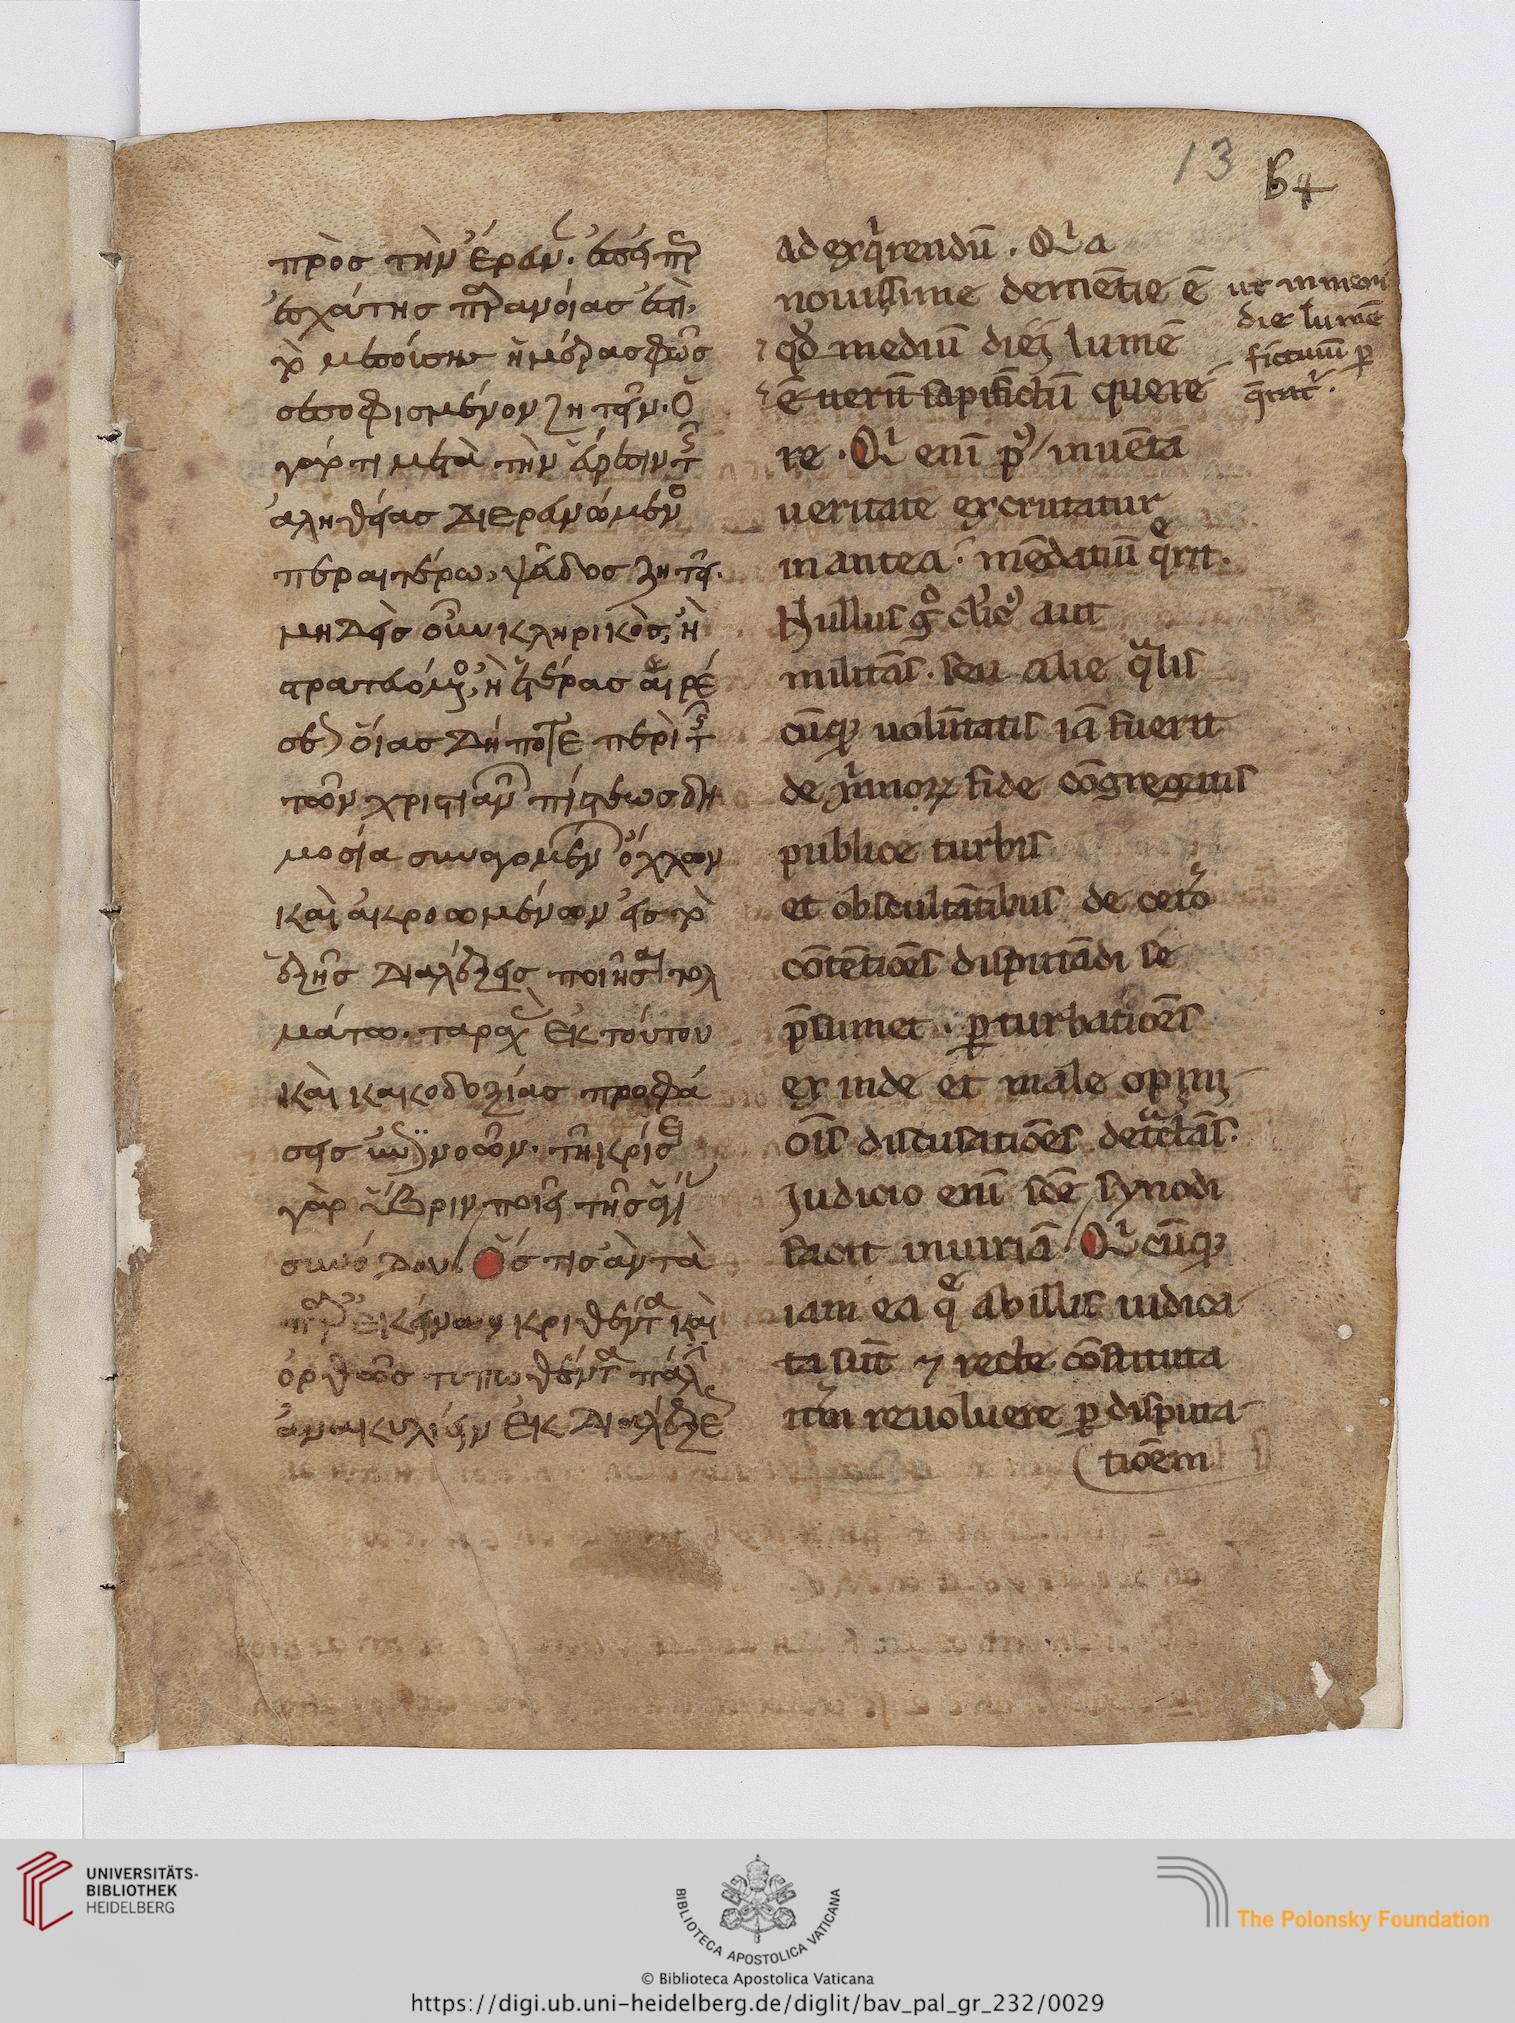 13 b+
πρὸς τὴν ἔραν. ἐπεὶ περ
ἐσχάτης παρανοίας ἐστὶ,
μεσούσης ἡμέρας φῶς
σεσοφισμένον ζητεῖν. ὁ
γάρ τι μετὰ τὴν εὕρεσιν τῆς
ἀληθείας διερευνώμενος
περαιτέρω, ψεῦδος ζητεῖ.
μηδεὶς οὖν κληρικὸς, ἢ
στρατευόμενος, ἢ ἑτέρας αἱρέ
σεως οἵας δήποτε περὶ τῆς
τῶν χριστιανῶν πίστεως δη
μοσία συναγομένων ὄχλων
καὶ ἀκροωμένων εἰς τὸ
ἑξῆς διαλέξεις ποιῆσαι τολ
μάτω. ταραχὴν ἐκ τούτου
καὶ κακοδοξίας προφά
σεις ἐπινοῶν. τῇ κρίσει
γὰρ ὕβριν ποιεῖ τῆς ἁγίας
συνόδου. Ὅς τις ἂν τὰ
παρ' ἐκείνων κριθέντα καὶ
ὀρθῶς τυπωθέντα πάλιν
ἀνακυλίειν ἐκ διαλέξε
ad exq̍rendū. Qꝰa
nouissime dem̄etie ē
qd̄ mediū diei lumē
ē uerū sap fictū querē
re. Qͥ enī pꝰ inuēta
ueritatē excrutatur
in antea. mēdatiū qͤrit.
Nullus gͦ cl̍icꝰ aut
militās. seu alie qͣlis
cūqꝫ uolūtatis iā fuerit
de xp̍ianoꝝ fide cōgregatis
publice turbis
et obscultātibus de ceto̍
cōtētiōēs disputādi se
p̄sumet. ꝑturbatiōēs
ex inde et male opini-
oīs discusatiōēs detͣctās.
Judicio enī sc̄e synodi
facit iniuriā. Qͥcūqꝫ
iam ea qͤ ab illis iudica-
ta sūt ⁊ recte cōstituta
it̍m reuoluere ꝑ disputa-
tiōēm
ut in meri
die lumē
fictum ꝑ
q̄rat̍.
UNIVERSITÄTS-
BIBLIOTHEK
HEIDELBERG
BIBLIOTECA APOSTOLICA VATICANA
© Biblioteca Apostolica Vaticana
The Polonsky Foundation
https://digi.ub.uni-heidelberg.de/diglit/bav_pal_gr_232/0029